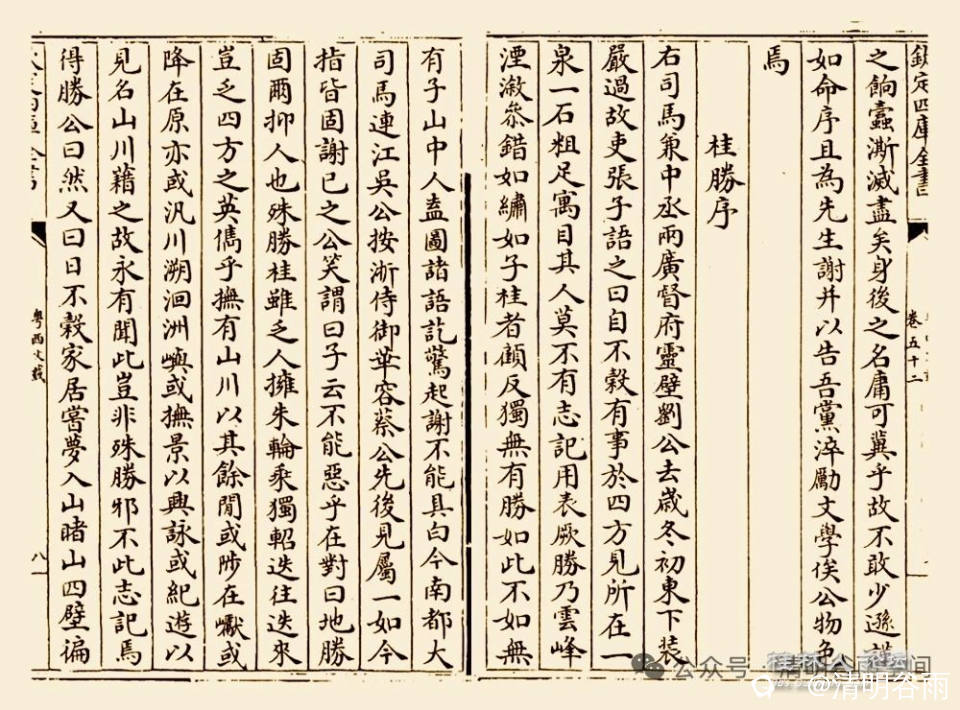 欽定四庫全書
卷五十二
之餉蠹澌滅盡矣身後之名庸可冀乎故不敢少遜謹
如命序且為先生謝并以告吾黨淬勵文學俟公物色
焉
桂勝序
右司馬兼中丞兩廣督府靈壁劉公去歲冬初東下裝
嚴過故吏張子語之曰自不穀有事於四方見所在一
泉一石粗足寓目其人莫不有志記用表厥勝乃雲峰
湮漵叅錯如繡如子桂者顧反獨無有勝如此不如無
有子山中人盍圖諸語訖驚起謝不能具白今南都大
司馬連江吳公按浙侍御華容蔡公先後見屬一如今
指皆固謝已之公笑謂曰子云不能惡乎在對曰地勝
固爾抑人也殊勝桂雖乏人擁朱輪乘獨軺迭往迭來
豈乏四方之英儁乎撫有山川以其餘閒或陟在巘或
降在原亦或汎川溯洄洲嶼或撫景以興詠或紀遊以
見名山川藉之故永有聞此豈非殊勝邪不此志記焉
得勝公曰然又曰日不穀家居嘗夢入山睹山四壁徧
粵西文載
八
公众号·清明谷雨
@清明谷雨